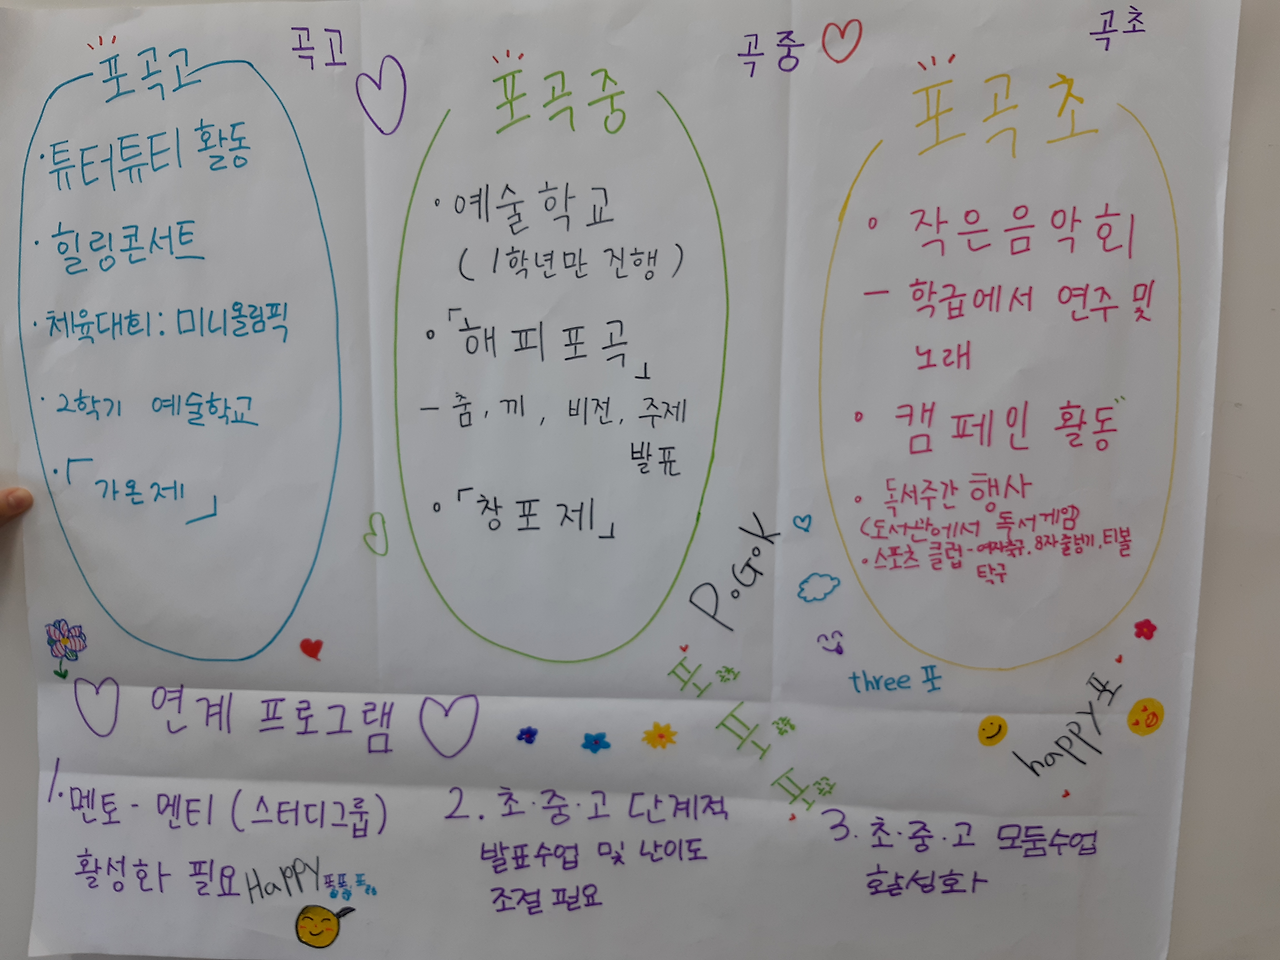 곡고
포곡고
· 튜터튜티 활동
· 힐링콘서트
· 체육대회: 미니올림픽
· 2학기 예술학교
· 「가온제」
곡중
포곡중
· 예술학교
(1학년만 진행)
· 「해피포곡」
- 춤, 끼, 비전, 주제
발표
· 「창포제」
곡초
포곡초
· 작은음악회
- 학급에서 연주 및
노래
· 캠페인 활동
· 독서주간 행사
(도서관에서 독서게임)
· 스포츠 클럽 - 여자축구, 8자줄넘기, 티볼
탁구
P.G.K
포
포
포
three 포
happy포
연계 프로그램
1. 멘토 - 멘티 (스터디그룹)
활성화 필요
Happy
2. 초·중·고 단계적
발표수업 및 난이도
조절 필요
3. 초·중·고 모둠수업
활성화